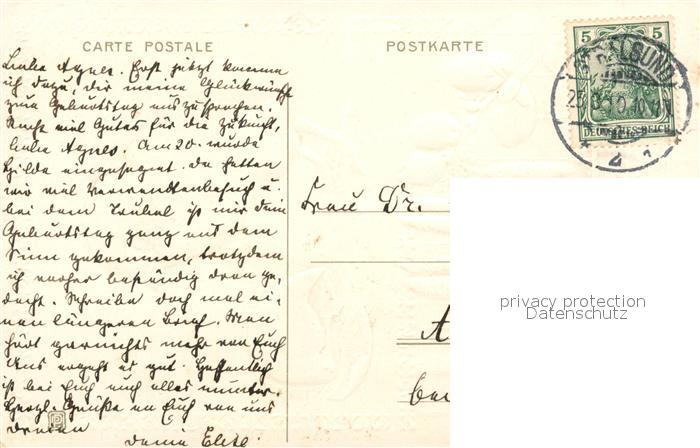 CARTE POSTALE
POSTKARTE
5 5
DEUTSCHES REICH
Liebe Agnes. Erst jetzt komme
ich dazu, dir meine Glückwünsche
zum Geburtstag auszusprechen.
Recht viel Gutes für die Zukunft,
liebe Agnes. Am 20. wurde
Hilde eingesegnet. Da hatten
wir viel Verwandtenbesuch u.
bei dem Trubel ist mir dein
Geburtstag ganz aus dem
Sinn gekommen, trotzdem
ich vorher beständig dran ge-
dacht. Schreibe doch mal ei-
nen längeren Brief. Man
hört garnichts mehr von Euch
Uns ergeht es gut. Hoffentlich
ist bei Euch auch alles munter.
Herzl. Grüße an Euch von uns
dreien
deine
Frau Dr.
A
privacy protection
Datenschutz